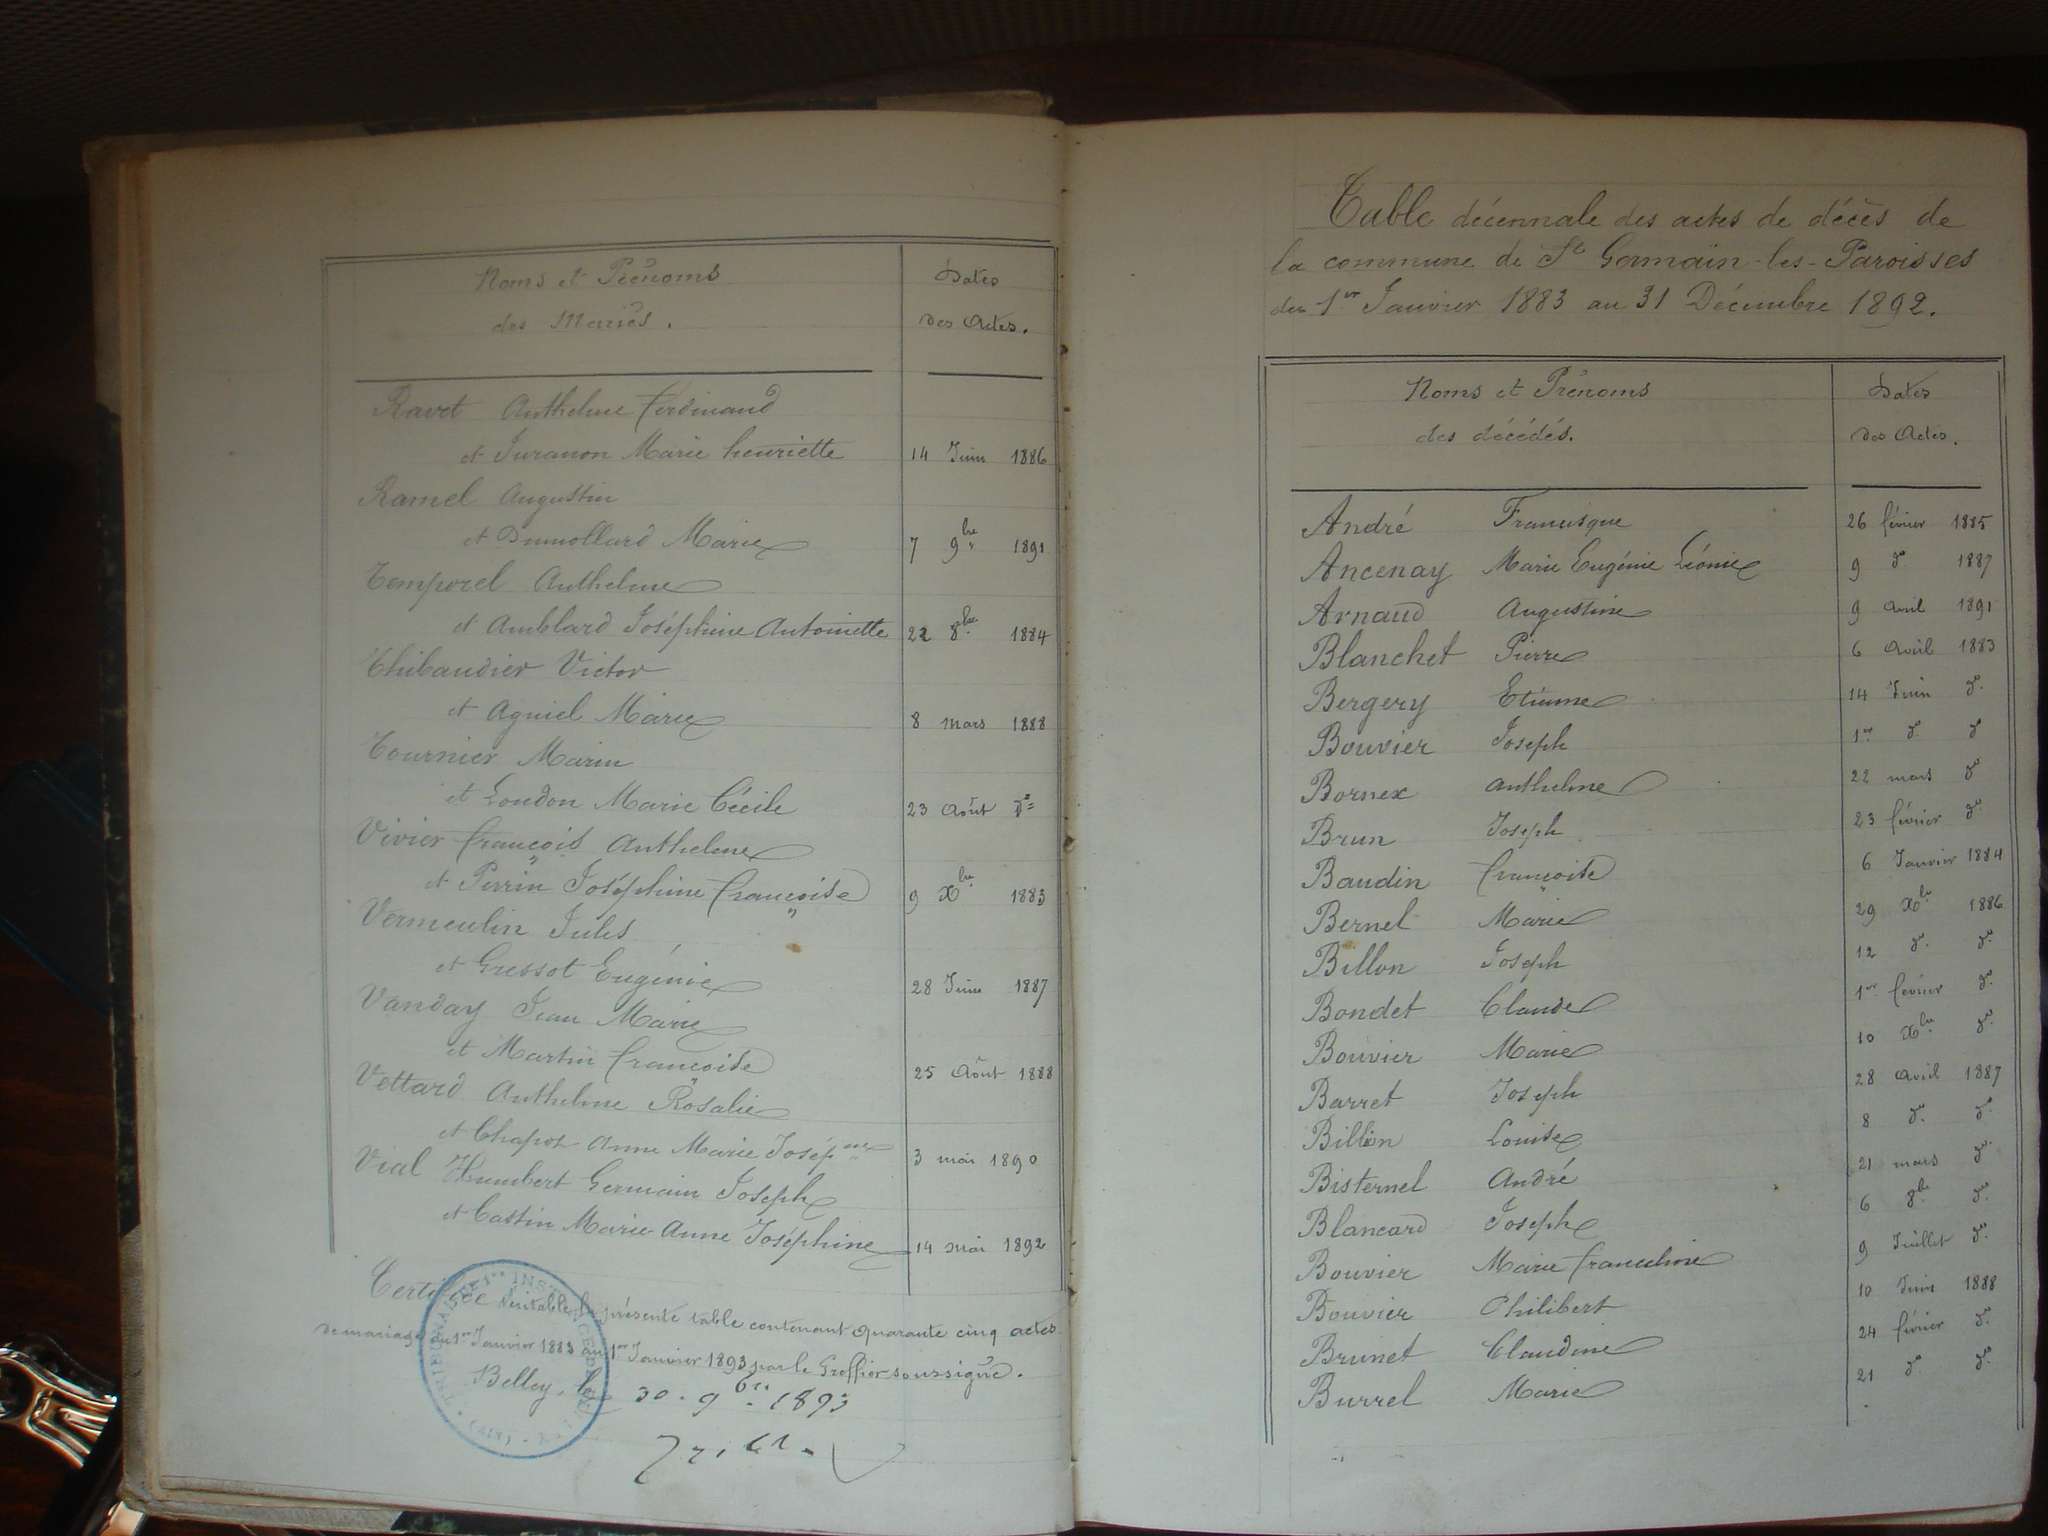 Noms et Prénoms
des Mariés.
Dates
des Actes.
Ravet Anthelme Ferdinand
et Juranon Marie henriette 14 Juin 1886
Ramel Augustin
et Dumollard Marie 7 9bre 1891
Temporel Anthelme
et Amblard Joséphine Antoinette 22 8bre 1884
Thibaudier Victor
et Agniel Marie 8 mars 1888
Tournier Marin
et Loudon Marie Cécile 23 Août do
Vivier François Anthelme
et Perrin Joséphine Françoise 9 Xbre 1883
Vermeulin Jules
et Gressot Eugénie 28 Juin 1887
Vanday Jean Marie
et Martin Françoise 25 Août 1888
Vettard Anthelme Rosalie
et Chapot Anne Marie Josépine 3 mai 1890
Vial Humbert Germain Joseph
et Castin Marie Anne Joséphine 14 mai 1892
Certifiée véritable la présente table contenant quarante cinq actes
de mariages du 1er Janvier 1883 au 1er Janvier 1893 par le Greffier soussigné.
Belley, le 30 . 9bre 1893
Table décennale des actes de décès de
la commune de St Germain-les-Paroisses
du 1er Janvier 1883 au 31 Décembre 1892.
Noms et Prénoms
des décédés.
Dates
des Actes.
André Francisque 26 février 1885
Ancenay Marie Eugénie Léonie 9 do 1887
Arnaud Augustine 9 avril 1891
Blanchet Pierre 6 Avril 1883
Bergery Etienne 14 Juin do
Bouvier Joseph 1er do do
Bornex Anthelme 22 mars do
Brun Joseph 23 février do
Baudin Françoise 6 Janvier 1884
Bernel Marie 29 Xbre 1886
Billon Joseph 12 do do
Bondet Claude 1er février do
Bouvier Marie 10 Xbre do
Barret Joseph 28 avril 1887
Billon Louise 8 do do
Bisternel André 21 mars do
Blancard Joseph 6 8bre do
Bouvier Marie Francline 9 Juillet do
Bouvier Philibert 10 Juin 1888
Brunet Claudine 24 février do
Burrel Marie 21 do do